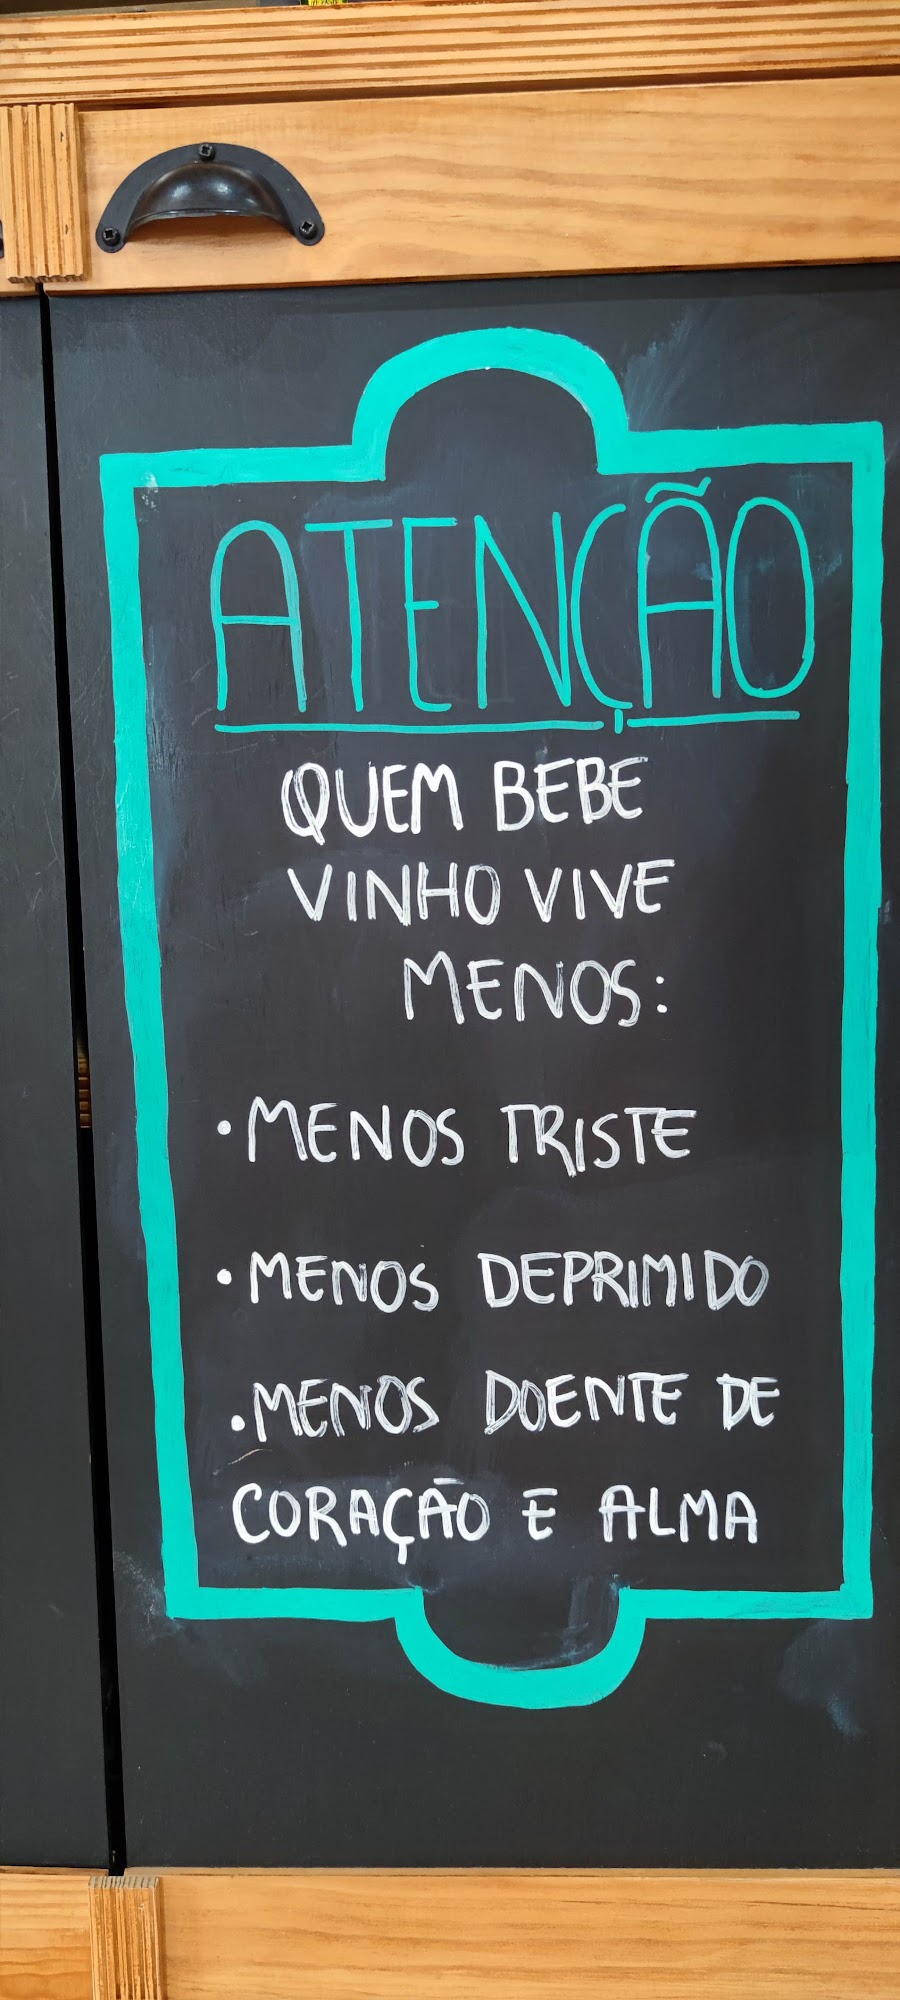 ATENÇÃO
QUEM BEBE
VINHO VIVE
MENOS:
• MENOS TRISTE
• MENOS DEPRIMIDO
• MENOS DOENTE DE
CORAÇÃO E ALMA